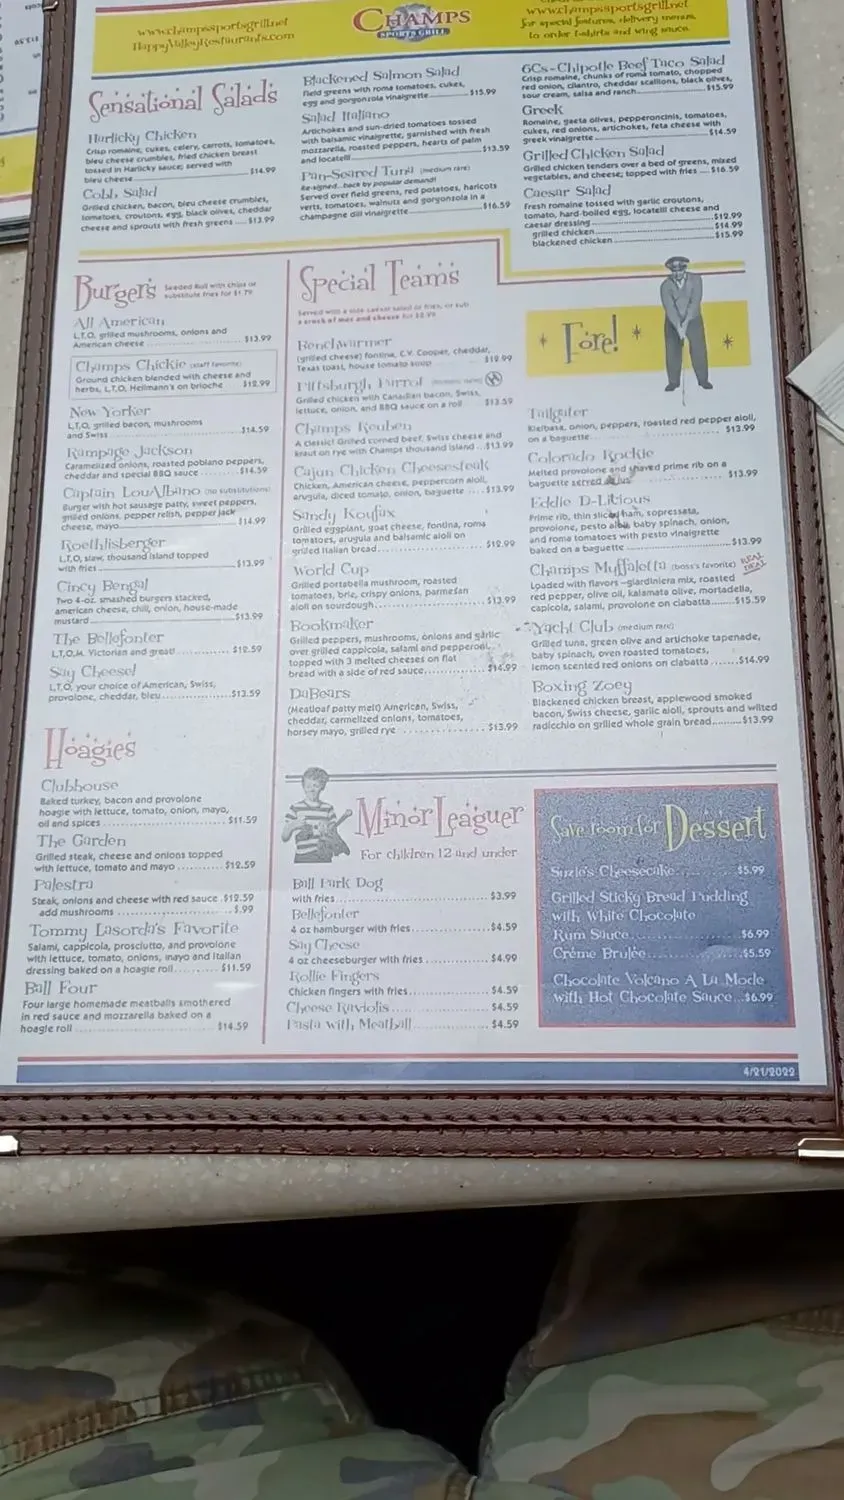 www.champssportsgrill.net
HappyValleyRestaurants.com
CHAMPS
SPORTS GRILL
www.champssportsgrill.net
for special features, delivery menu,
to order t-shirts and wing sauce.
Sensational Salads
Harlicky Chicken
Crisp romaine, cukes, celery, carrots, tomatoes,
bleu cheese crumbles, fried chicken breast
tossed in Harlicky sauce; served with
bleu cheese $14.99
Cobb Salad
Grilled chicken, bacon, bleu cheese crumbles,
tomatoes, croutons, egg, black olives, cheddar
cheese and sprouts with fresh greens $13.99
Blackened Salmon Salad
Field greens with roma tomatoes, cukes,
egg and gorgonzola vinaigrette $15.99
Salad Italiano
Artichokes and sun-dried tomatoes tossed
with balsamic vinaigrette, garnished with fresh
mozzarella, roasted peppers, hearts of palm
and locatelli $13.59
Pan-Seared Tuna (medium rare)
Re-signed...back by popular demand!
Served over field greens, red potatoes, haricots
verts, tomatoes, walnuts and gorgonsola in a
champagne dill vinaigrette $16.59
GCs-Chipotle Beef Taco Salad
Crisp romaine, chunks of roma tomato, chopped
red onion, cilantro, cheddar scallions, black olives,
sour cream, salsa and ranch $15.99
Greek
Romaine, gaeta olives, pepperoncinis, tomatoes,
cukes, red onions, artichokes, feta cheese with
greek vinaigrette $14.59
Grilled Chicken Salad
Grilled chicken tenders over a bed of greens, mixed
vegetables, and cheese; topped with fries $16.59
Caesar Salad
Fresh romaine tossed with garlic croutons,
tomato, hard-boiled egg, locatelli cheese and
caesar dressing $12.99
grilled chicken $14.99
blackened chicken $15.99
Burgers
Seeded Roll with chips or
substitute fries for $1.79
All American
L,T,O, grilled mushrooms, onions and
American cheese $13.99
Champs Chickie (staff favorite)
Ground chicken blended with cheese and
herbs, L,T,O, Hellmann's on brioche $12.99
New Yorker
L,T,O, grilled bacon, mushrooms
and Swiss $14.59
Rampage Jackson
Caramelized onions, roasted poblano peppers,
cheddar and special BBQ sauce $14.59
Captain LouAlbano (no substitutions)
Burger with hot sausage patty, sweet peppers,
grilled onions, pepper relish, pepper jack
cheese, mayo $14.99
Roethlisberger
L,T,O, slaw, thousand island topped
with fries $13.99
Cincy Bengal
Two 4-oz. smashed burgers stacked,
american cheese, chili, onion, house-made
mustard $13.99
The Bellefonter
L,T,O,M. Victorian and great! $12.59
Say Cheese!
L,T,O, your choice of American, Swiss,
provolone, cheddar, bleu $13.59
Hoagies
Clubhouse
Baked turkey, bacon and provolone
hoagie with lettuce, tomato, onion, mayo,
oil and spices $11.59
The Garden
Grilled steak, cheese and onions topped
with lettuce, tomato and mayo $12.59
Palestra
Steak, onions and cheese with red sauce $12.59
add mushrooms $.99
Tommy Lasorda's Favorite
Salami, cappicola, prosciutto, and provolone
with lettuce, tomato, onions, mayo and Italian
dressing baked on a hoagie roll $11.59
Ball Four
Four large homemade meatballs smothered
in red sauce and mozzarella baked on a
hoagie roll $14.59
Special Teams
Served with a side caesar salad or fries, or sub
a crock of mac and cheese for $2.99
Benchwarmer
(grilled cheese) fontina, C.V. Cooper, cheddar,
Texas toast, house tomato soup $12.99
Pittsburgh Parrot
Grilled chicken with Canadian bacon, Swiss,
lettuce, onion, and BBQ sauce on a roll $13.59
Champs Reuben
A classic! Grilled corned beef, Swiss cheese and
kraut on rye with Champs thousand island $13.99
Cajun Chicken Cheesesteak
Chicken, American cheese, peppercorn aioli,
arugula, diced tomato, onion, baguette $13.99
Sandy Koufax
Grilled eggplant, goat cheese, fontina, roma
tomatoes, arugula and balsamic aioli on
grilled Italian bread $12.99
World Cup
Grilled portabella mushroom, roasted
tomatoes, brie, crispy onions, parmesan
aioli on sourdough $13.99
Bookmaker
Grilled peppers, mushrooms, onions and garlic
over grilled cappicola, salami and pepperoni,
topped with 3 melted cheeses on flat
bread with a side of red sauce $14.99
DaBears
(Meatloaf patty melt) American, Swiss,
cheddar, carmelized onions, tomatoes,
horsey mayo, grilled rye $13.99
Fore!
Tailgater
Kielbasa, onion, peppers, roasted red pepper aioli,
on a baguette $13.99
Colorado Rockie
Melted provolone and shaved prime rib on a
baguette served au jus $13.99
Eddie D-Licious
Prime rib, thin sliced ham, sopressata,
provolone, pesto aioli, baby spinach, onion,
and roma tomatoes with pesto vinaigrette
baked on a baguette $13.99
Champs Muffaletta (boss's favorite) REAL DEAL
Loaded with flavors -giardiniera mix, roasted
red pepper, olive oil, kalamata olive, mortadella,
capicola, salami, provolone on ciabatta $15.59
Yacht Club (medium rare)
Grilled tuna, green olive and artichoke tapenade,
baby spinach, oven roasted tomatoes,
lemon scented red onions on ciabatta $14.99
Boxing Zoey
Blackened chicken breast, applewood smoked
bacon, Swiss cheese, garlic aioli, sprouts and wilted
radicchio on grilled whole grain bread $13.99
Minor Leaguer
For children 12 and under
Ball Park Dog
with fries $3.99
Bellefonter
4 oz hamburger with fries $4.59
Say Cheese
4 oz cheeseburger with fries $4.99
Rollie Fingers
Chicken fingers with fries $4.59
Cheese Raviolis $4.59
Pasta with Meatball $4.59
Save room for Dessert
Suzie's Cheesecake $5.99
Grilled Sticky Bread Pudding
with White Chocolate
Rum Sauce $6.99
Crème Brulée $5.59
Chocolate Volcano A La Mode
with Hot Chocolate Sauce $6.99
4/21/2022